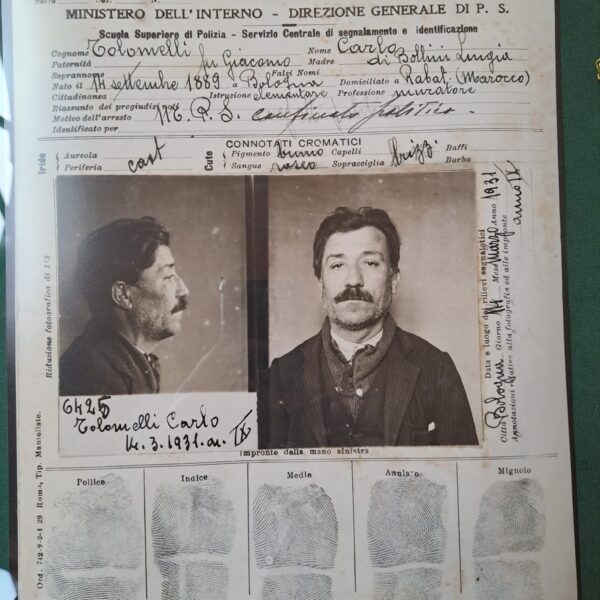 MINISTERO DELL'INTERNO - DIREZIONE GENERALE DI P. S.
Scuola Superiore di Polizia - Servizio Centrale di segnalamento e identificazione
Cognome Tolomelli Nome Carlo
Paternità fu Giacomo Madre di Bollini Luigia
Soprannome Falsi Nomi
Nato il 14 settembre 1889 a Bologna Domiciliato a Rabat (Marocco)
Cittadinanza Istruzione elementare Professione muratore
Riassunto dei pregiudizi noti
Motivo dell'arresto M.R.S. confinato politico
Identificato per
CONNOTATI CROMATICI
Iride Aureola Periferia cast Cute Pigmento bruno Capelli brizz Baffi
Sangue roseo Sopracciglia Barba
Riduzione fotografica di 1/5
6425
Tolomelli Carlo
14.3.1931. IX
Data e luogo dei rilievi segnaletici
Città Bologna Giorno 14 Mese Marzo Anno 1931
anno IX
Annotazioni relative alla fotografia ed alle impronte
Impronte della mano sinistra
Pollice Indice Medio Anulare Mignolo
Ord. 742-9-2-1 29 Roma, Tip. Mantellate.